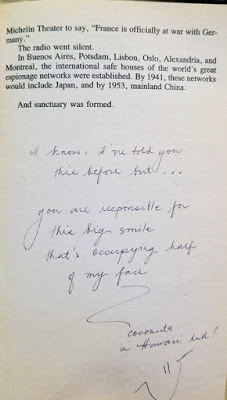 Michelin Theater to say, "France is officially at war with Ger-
many."
The radio went silent.
In Buenos Aires, Potsdam, Lisbon, Oslo, Alexandria, and
Montreal, the international safe houses of the world's great
espionage networks were established. By 1941, these networks
would include Japan, and by 1953, mainland China.
And sanctuary was formed.
I know, I've told you
this before but...
you are reponsible for
this big smile
that's occupying half
of my face
coconuts
in Hawaii huh?